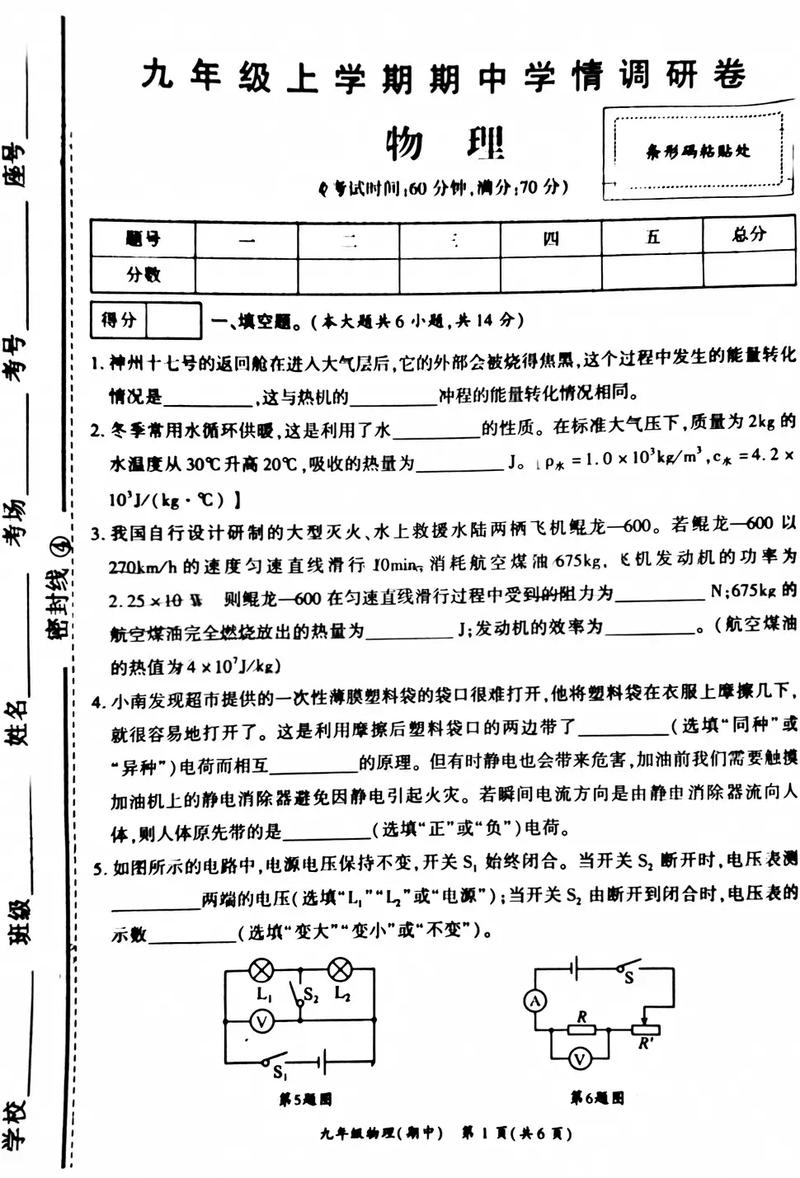 九年级上学期期中学情调研卷
物 理
条形码粘贴处
(考试时间:60分钟,满分:70分)
题号 一 二 三 四 五 总分
分数
得分
一、填空题。(本大题共6小题,共14分)
1. 神州十七号的返回舱在进入大气层后,它的外部会被烧得焦黑,这个过程中发生的能量转化
情况是________,这与热机的________冲程的能量转化情况相同。
2. 冬季常用水循环供暖,这是利用了水________的性质。在标准大气压下,质量为2kg的
水温度从30℃升高20℃,吸收的热量为________J。[ρ水=1.0×10³kg/m³,c水=4.2×
10³J/(kg·℃)】
3. 我国自行设计研制的大型灭火、水上救援水陆两栖飞机鲲龙—600。若鲲龙—600以
270km/h的速度匀速直线滑行10min,消耗航空煤油675kg,飞机发动机的功率为
2.25×10 则鲲龙—600在匀速直线滑行过程中受到的阻力为________N;675kg的
航空煤油完全燃烧放出的热量为________J;发动机的效率为________。(航空煤油
的热值为4×10⁷J/kg)
4. 小南发现超市提供的一次性薄膜塑料袋的袋口很难打开,他将塑料袋在衣服上摩擦几下,
就很容易地打开了。这是利用摩擦后塑料袋口的两边带了________(选填“同种”或
“异种”)电荷而相互________的原理。但有时静电也会带来危害,加油前我们需要触摸
加油机上的静电消除器避免因静电引起火灾。若瞬间电流方向是由静电消除器流向人
体,则人体原先带的是________(选填“正”或“负”)电荷。
5. 如图所示的电路中,电源电压保持不变,开关S₁始终闭合。当开关S₂断开时,电压表测
________两端的电压(选填“L₁”“L₂”或“电源”);当开关S₂由断开到闭合时,电压表的
示数________(选填“变大”“变小”或“不变”)。
L₁ S₂ L₂
V
S₁
第5题图
S
A
R
R′
V
第6题图
九年级物理(期中) 第1页(共6页)
座号
考号
考场
密封线④
姓名
班级
学校